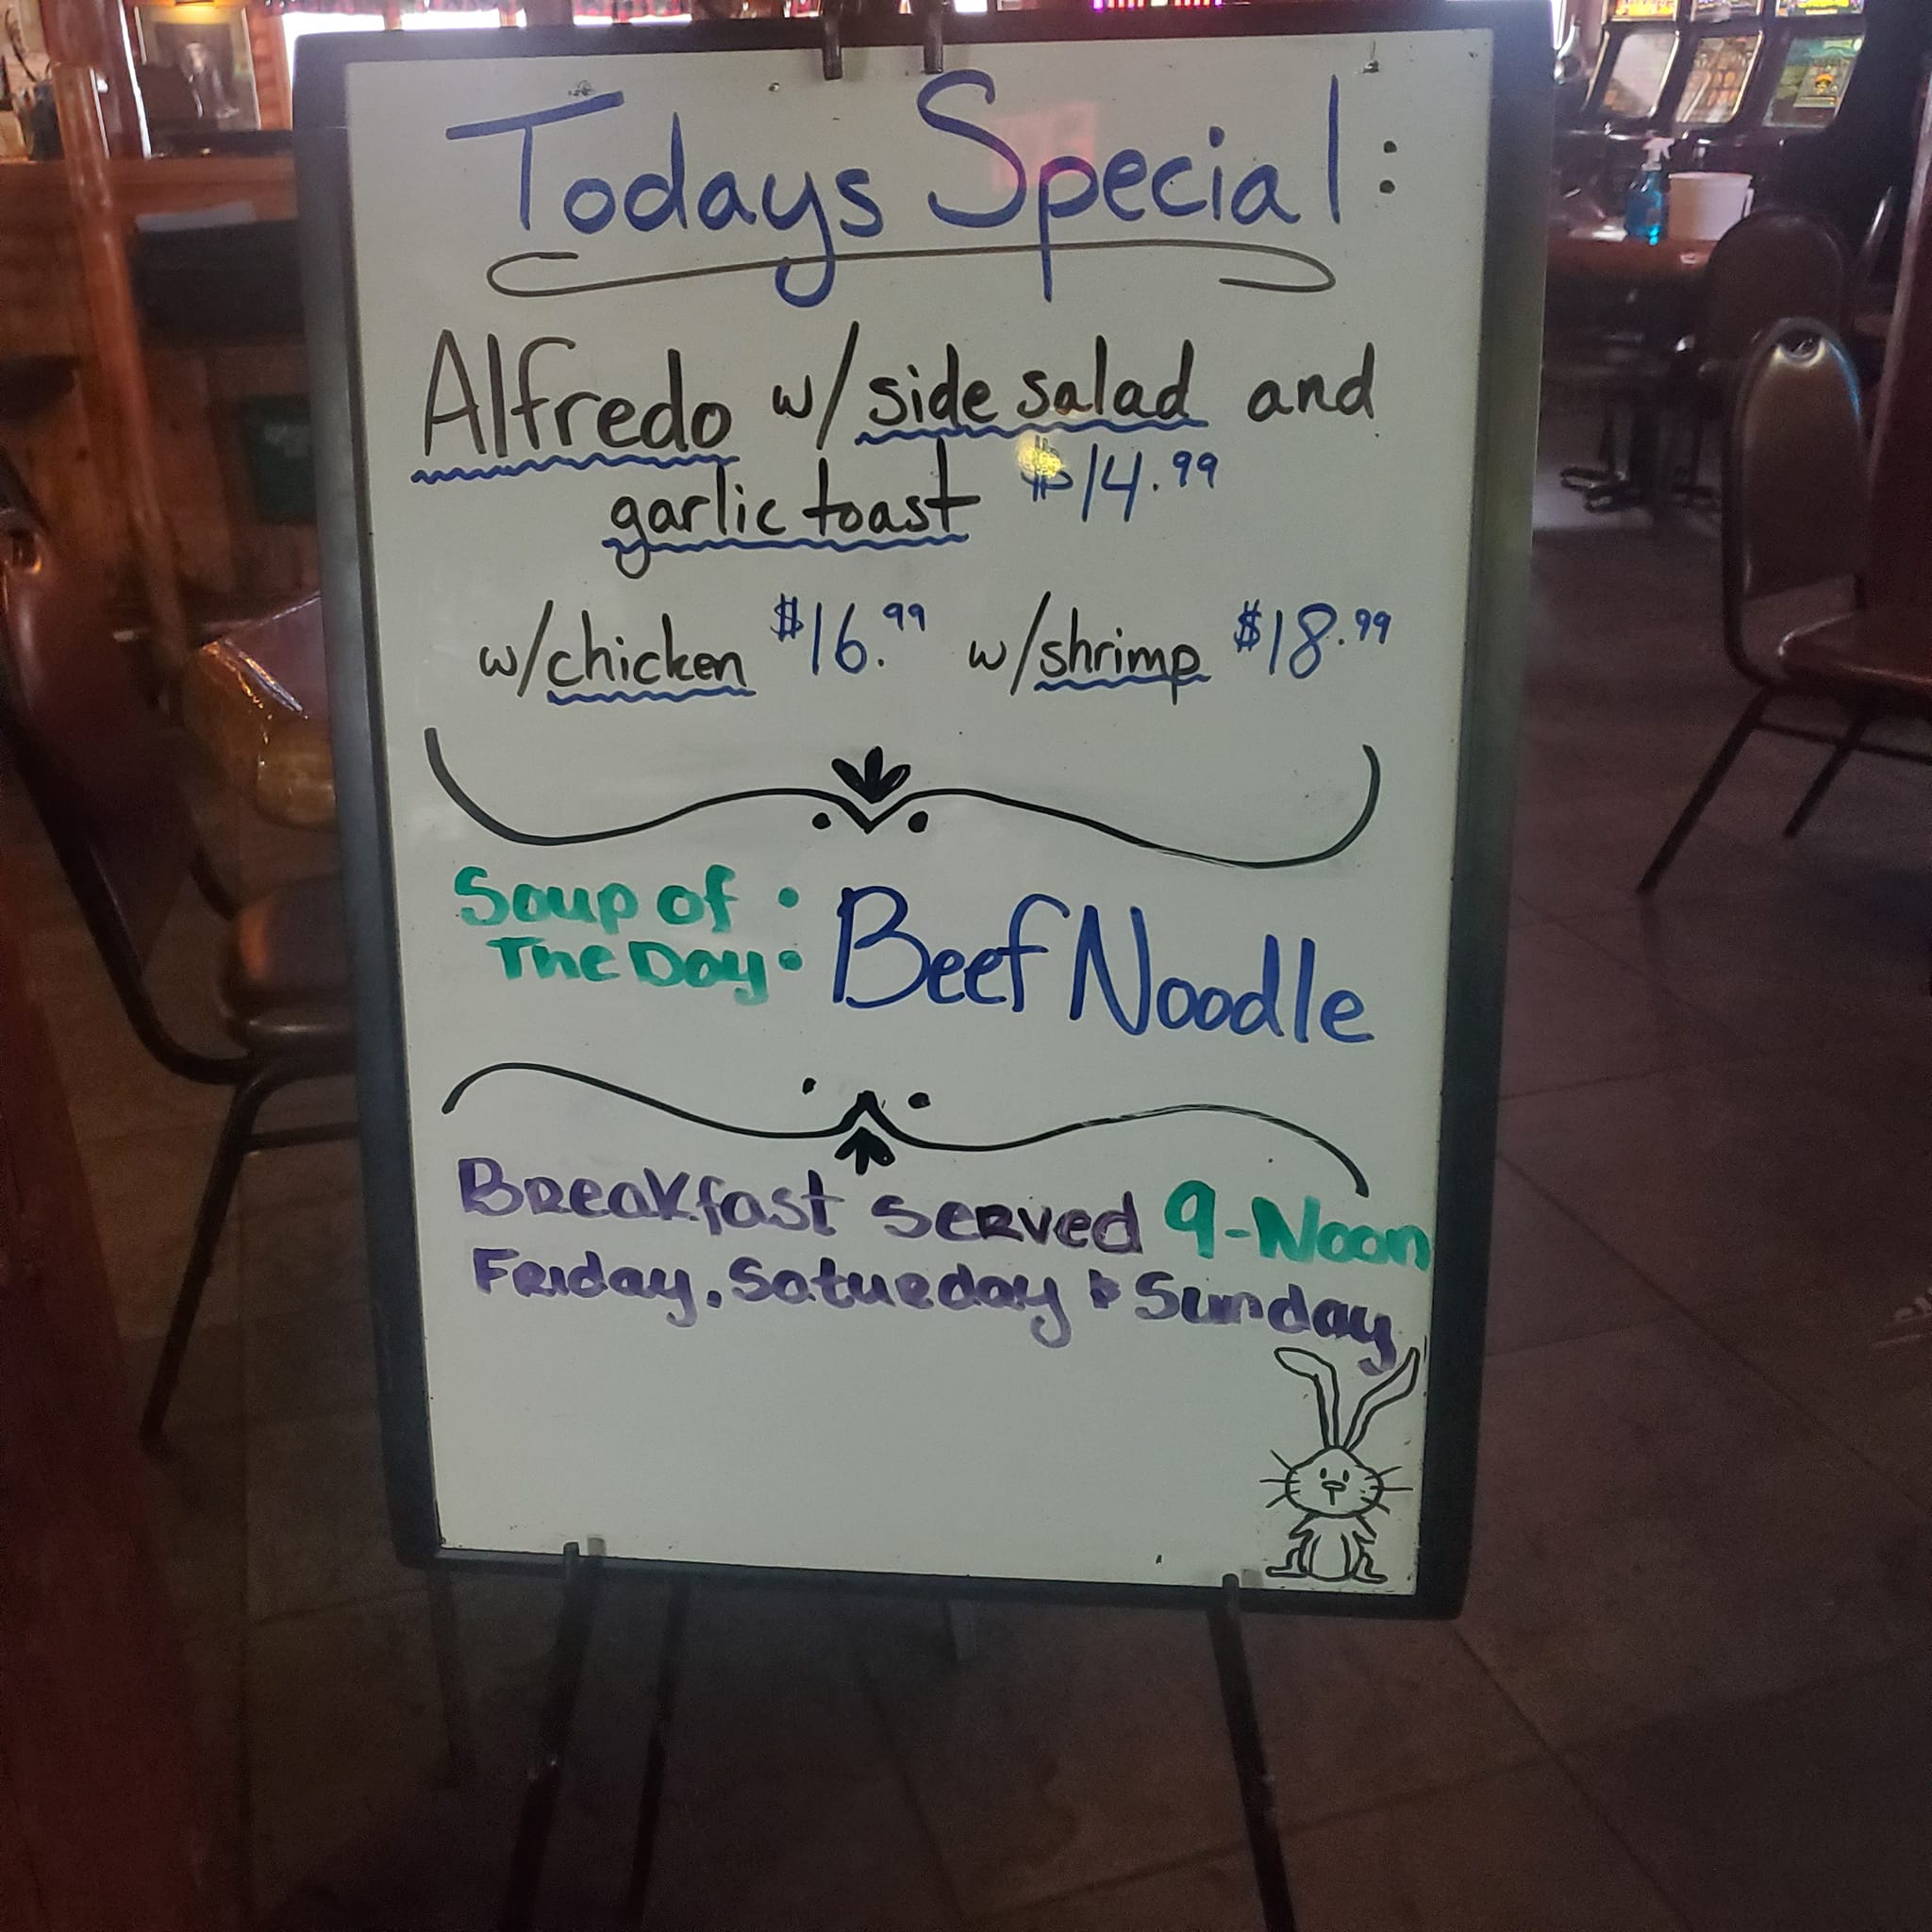 Todays Special:
Alfredo w/ side salad and
garlic toast $14.99
w/chicken $16.99 w/shrimp $18.99
Soup of
The Day: Beef Noodle
Breakfast served 9-Noon
Friday, Saturday & Sunday